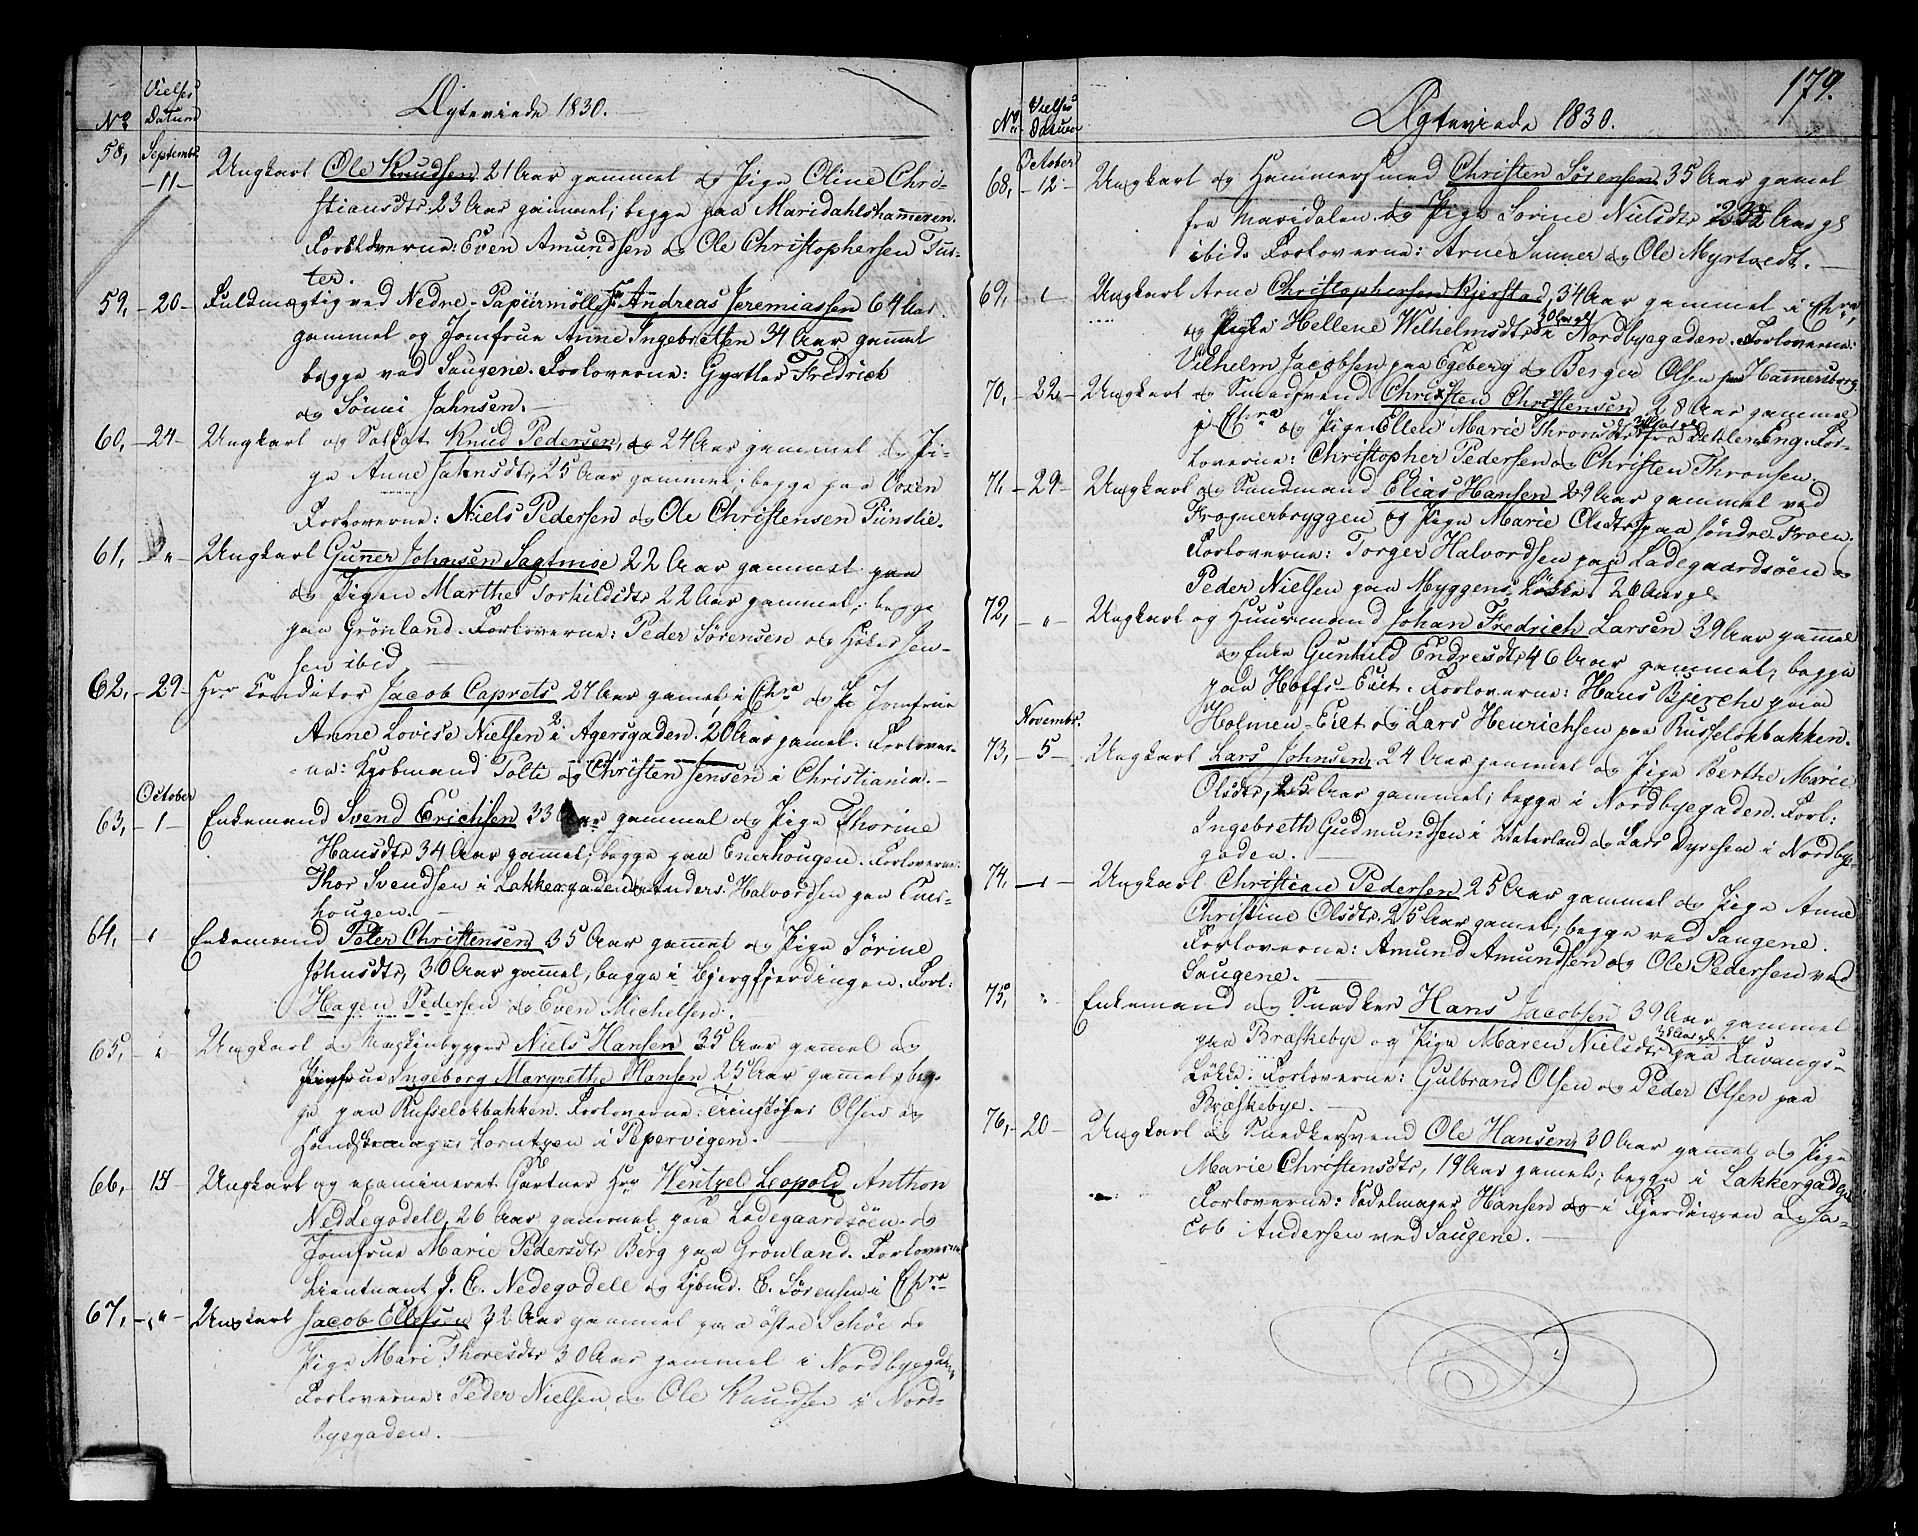 No Vielses Datum Ægteviede 1830.
58, Septembr 11 Ungkarl Ole Knudsen 21 Aar gammel og Pige Oline Chri-
stiansdtr 23 Aar gammel; begge paa Maridahlshammeren.
Forloverne: Even Amundsen og Ole Christophersen Tus-
ter.
59, -20- Fuldmægtig ved Nedre-Papiirmølle Hr Andreas Jeremiassen 64 Aar
gammel og Jomfrue Anne Ingebretsen 34 Aar gammel
begge ved Saugene. Forloverne: Gyrtler Fredrich
og Sönni Jahnsen.
60, -24- Ungkarl og Soldat Knud Pedersen, og 24 Aar gammel og Pi-
ge Anne Jahnsdtr, 25 Aar gammel; begge paa Voxen
Forloverne: Niels Pedersen og Ole Christensen
61, Ungkarl Gunner Johnsen Sagtmoe 22 Aar gammel paa
og Pigen Marthe Torkildsdtr 22 Aar gammel; begge
paa Grönland. Forloverne: Peder Sörensen og Höker Jen-
sen ibid.
62, -29- Hrr Conditor Jacob Caprets 27 Aar gamel i Chra og Jomfrue
Anne Lovise Nielsen i Agersgaden. 20 Aar gamel. Forlover-
ne: Kjöbmand Tolti og Christen Jensen i Christiania.
October
63, -1- Enkemand Svend Erichsen 33 Aar gammel og Pige Thorine
Hansdtr 34 Aar gamel; begge paa Enerhougen. Forloverne:
Thor Svendsen i Lakkergaden og Anders Halvordsen paa Ener-
hougen.
64, Enkemand Peter Christensen 35 Aar gammel og Pige Sörine
Johnsdtr, 30 Aar gammel, begge i Bjergfjerdingen. Forl:
Hagen Pedersen og Even Michelsen.
65, Ungkarl og Maskinbygger Niels Hansen 35 Aar gammel og
Jomfrue Ingeborg Margrethe Hansen 25 Aar gammel, beg-
ge paa Russelokbakken. Forloverne: Olsen og
Handskemager Lorntzen i Pepervigen.
66, -15 Ungkarl og examineret Gartner Hrr Wentzel Leopold Anthon
Neddegodell, 26 Aar gammel paa Ladegaardsöen og
Jomfrue Marie Pedersdtr Berg paa Grönland. Forloverne
Lieutnant J. C. Nedegodell og Kjöbmd. C. Sörensen i Chra
67, -"- Ungkarl Jacob Ellefsen 32 Aar gammel paa östre Schöe og
Pige Mari Thoresdtr 30 Aar gammel i Nordbyegaden,
Forloverne: Peder Nielsen og Ole Knudsen i Nord-
byegaden.
179.
No Vielses Datum Ægteviede 1830.
October
68, -12- Ungkarl og Hammersmed Christen Sörensen 35 Aar gamel
fra Maridalen og Pige Sorine Nielsdtr Aar gl
ibid. Forloverne: Arne Sanner og Ole Myrtvedt.
69, Ungkarl Arne Christophersen Kjerstad, 34 Aar gammel i Chra,
og Pige Hellene Wilhelmsdtr 30 Aar gl i Nordbyegaden. Forloverne:
Vilhelm Jacobsen paa Egeberg og Berger Olsen paa Hammersborg
70, -22- Ungkarl og Smedsvend Christen Christensen 28 Aar gammel
i Chra og Pige Ellen Marie Thronsdtr fra DæhlenEng. For-
loverne: Christopher Pedersen og Christen Thronsen.
71, -29- Ungkarl og Sandmand Elias Hansen 29 Aar gammel ved
Frognerbryggen og Pige Marie Olsdtr paa söndre Froen.
Forloverne: Torger Halvordsen paa Ladegaardsöen og
Peder Nielsen paa Myggens Lökke. 26 Aar gl
72, -"- Ungkarl og Huusmand Johan Fredrich Larsen 39 Aar gammel
og Enke Gunhild Endresdtr 46 Aar gammel; begge
paa Hoffs-Eiet. Forloverne: Hans Bjerche paa
Holmen-Eiet og Lars Henrichsen paa Russelokbakken.
Novembr.
73, -5- Ungkarl Lars Johnsen 24 Aar gammel og Pige Berthe Marie
Olsdtr, 25 Aar gammel; begge i Nordbyegaden. Forl:
Ingebreth Gudmundsen i Vaterland og Lars Syvesen i Nordbye-
gaden.
74, Ungkarl Christian Pedersen 25 Aar gammel og Pige Anne
Christine Olsdtr. 25 Aar gamel; begge ved Saugene.
Forloverne: Amund Amundsen og Ole Pedersen ved
Saugene.
75, Enkemand og Snedker Hans Jacobsen 39 Aar gammel
paa Bræskebye og Pige Maren Nielsdtr 38 Aar gl. paa Zuvangs-
Lökke. Forloverne: Gulbrand Olsen og Peder Olsen paa
Bræskebye.
76, -20- Ungkarl og Snedkersvend Ole Hansen 30 Aar gammel og Pige
Marie Christensdtr, 19 Aar gamel; begge i Lakkergaden
Forloverne: Sadelmager Hansen og i Fjerdingen og Ja-
cob Andersen ved Saugene.